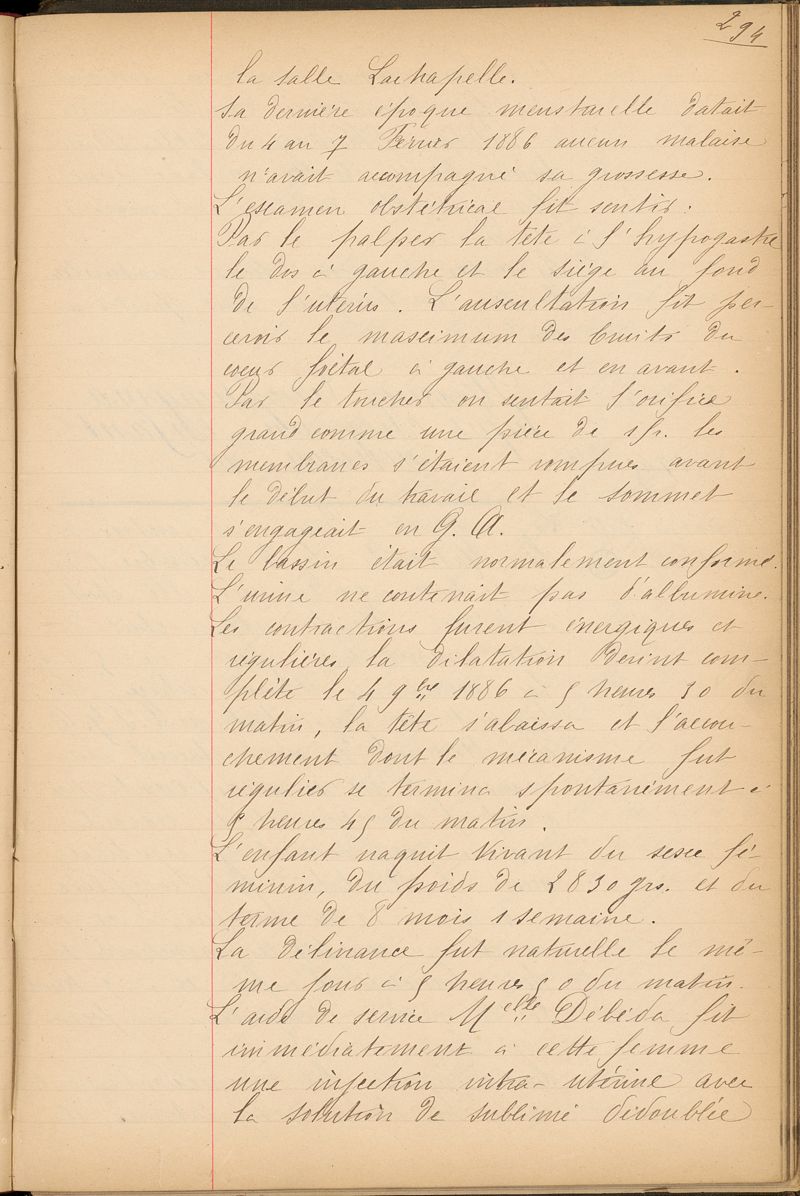 294
la salle Lachapelle.
Sa dernière époque menstruelle datait
du 4 au 7 Février 1886 aucun malaise
n'avait accompagné sa grossesse.
L'examen obstétrical fit sentir :
Par le palper la tête à l'hypogastre
le dos à gauche et le siège au fond
de l'utérus. L'auscultation fit per-
cevoir le maximum des bruits du
coeur foetal à gauche et en avant.
Par le toucher on sentait l'orifice
grand comme une pièce de 1 fr. les
membranes s'étaient rompues avant
le début du travail et le sommet
s'engageait en G. A.
Le bassin était normalement conformé.
L'urine ne contenait pas d'albumine.
Les contractions furent énergiques et
régulières la dilatation devint com-
plète le 4 9bre 1886 à 5 heures 30 du
matin, la tête s'abaissa et l'accou-
chement dont le mécanisme fut
régulier se termina spontanément à
5 heures 45 du matin.
L'enfant naquit vivant du sexe fé-
minin, du poids de 2830 grs. et du
terme de 8 mois 1 semaine.
La délivrance fut naturelle le mê-
me jour à 5 heures 50 du matin.
L'aide de service Melle Débéda fit
immédiatement à cette femme
une injection intra-utérine avec
la solution de sublimé dédoublée